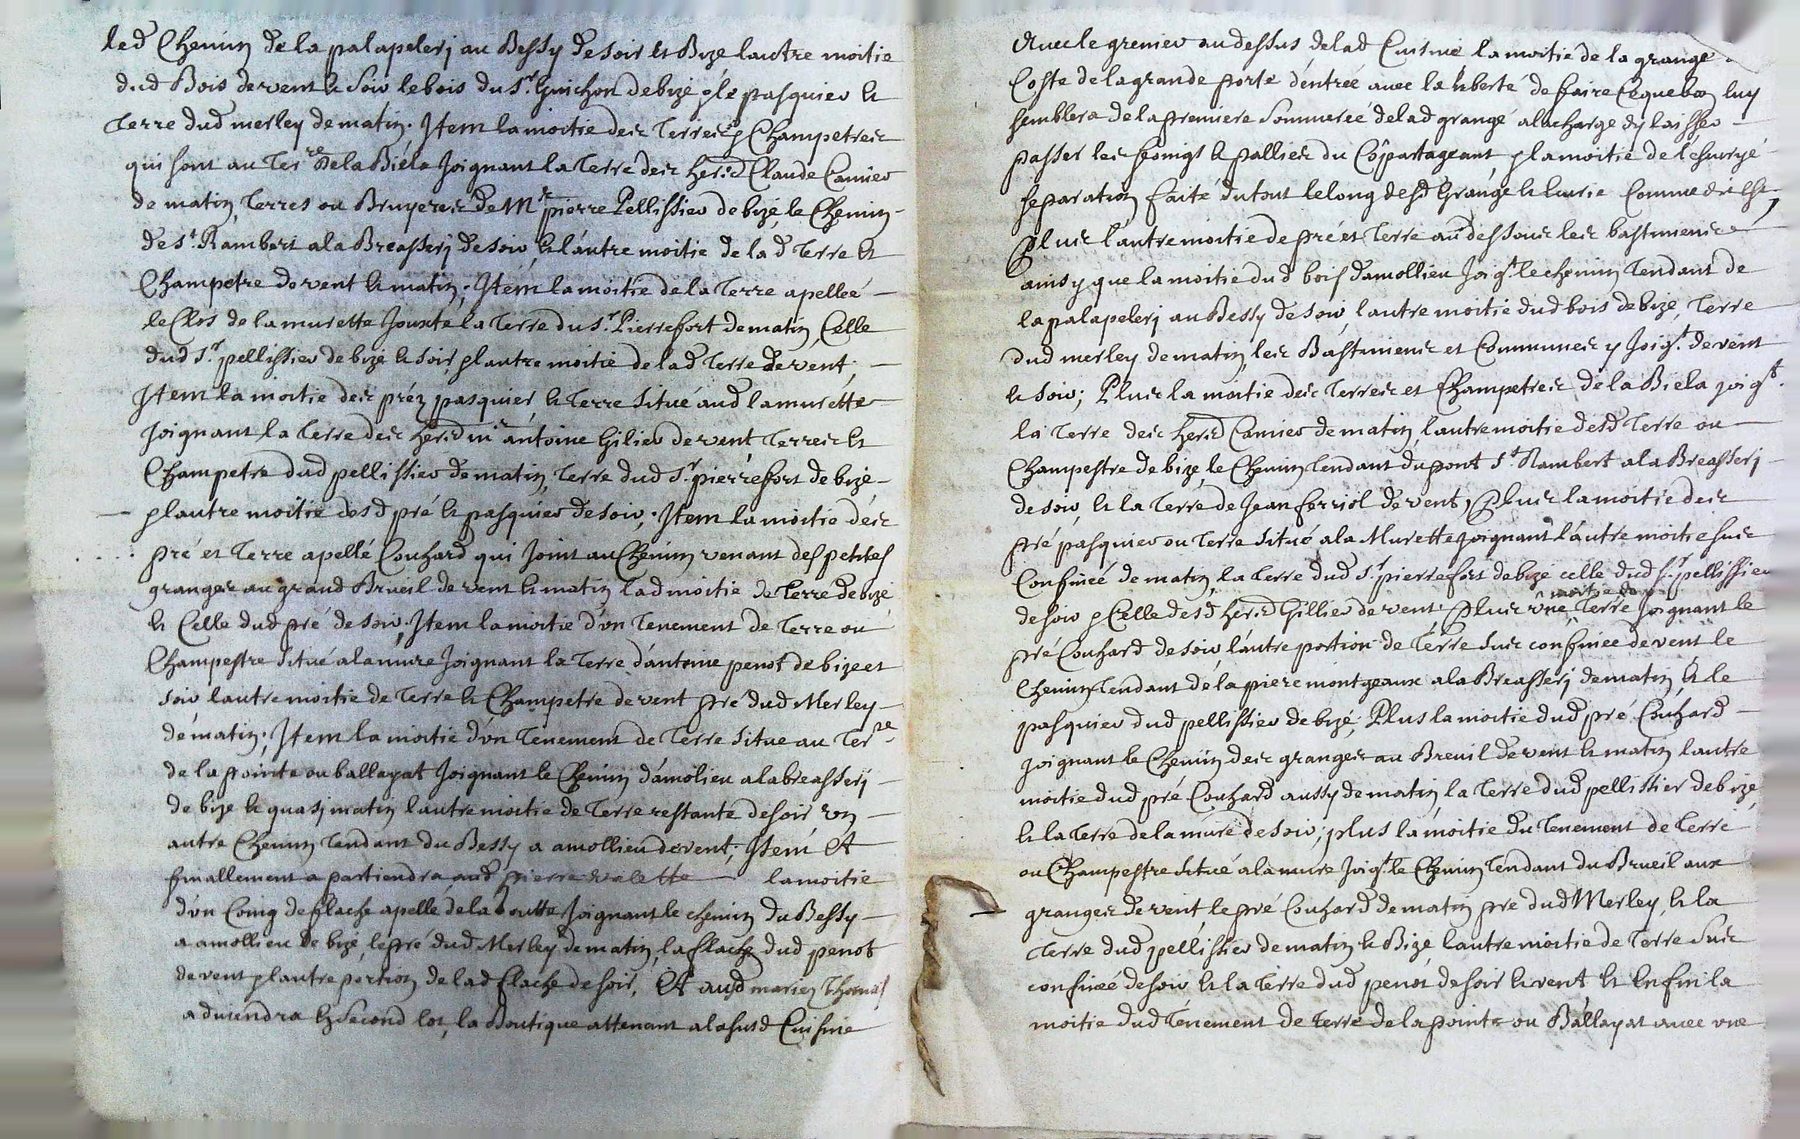 led Chemin de la palapelerj au Bessy de soir et Bize lautre moitie
dud Bois de vent & soir le bois du Sr. Guichon de bize & le pasquier &
Terre dud merley de matin. Item la moitie des Terres & Champetres
qui sont au Terre de la Biéla Joignant la Terre des herd Claude Camier
de matin, Terres ou Bruyeres de Mr pierre Pellissier de bizé, le Chemin
de St. Rambert a la Breasserj de soir, & lautre moitie de la d Terre &
Champetre de vent & matin; Item la moitie de la Terre apelleé
le Clos de la murette Jouxte la Terre du Sr. Pierrefort de matin, Celle
dud Sr pellissier de bize & soir & lautre moitie de lad Terre de vent;
Item la moitie des préz pasquier, & Terre situé aud lamurette
Joignant la Terre des herd mr antoine Gilier de vent Terres &
Champetre dud pellissier de matin, Terre dud Sr. pierrefort de bizé
& lautre moitie desd pré & pasquier de soir; Item la moitie des
pré et Terre apellé Couhard qui Joint au Chemin venant des petites
granges au grand Brueil de vent & matin, lad moitie de Terre de bize
& Celle dud pré de soir, Item la moitie d'un Tenement de Terre ou
Champestre situé a la mure Joignant la Terre d'antoine penot de bize et
soir lautre moitie de Terre & Champetre de vent pre dud Merley
de matin; Item la moitie d'un Tenement de Terre situe au Terre
de la pointe ou ballayat Joignant le Chemin d'amolieu a la breasserij
de bize & quasj matin lautre moitie de Terre restante de soir, un
autre Chemin Tendant du Bessy a amollieu de vent; Item Et
finallement apartiendra aud pierre valette la moitie
d'un Coing de flache apelle de la goutte Joignant le chemin du Bessy
a amollieu de bize, le pré dud Merley de matin, la flache dud penot
de vent & lautre portion de lad flache de soir, Et aud marien Thomas
adviendra & second lot, la Boutique attenant a la susd Cuisine
Avec le grenier au dessus de lad Cuisine la moitie de la grange
Coste de la grande porte d'entreé avec la liberté de faire Ce que bon luy
semblera de la premiere sommereé de lad grange a la charge d'y laisser
passer les foings & pallier du Copartageant & la moitie de
separation faite du tout le long desd Grange & Comme dit est,
Plus lautre moitie de pré et Terre au dessous les bastiments
ainsy que la moitie dud bois d'amollieu Joigt. le chemin Tendant de
la palapelerj au Bessy de soir, lautre moitie dud bois de bize, Terre
dud merley de matin, les Bastiments et Communes y Joigt. de vent
& soir; Plus la moitie des Terres et Champetres de la Biéla joigt.
la Terre des herd Camier de matin, lautre moitie desd Terre ou
Champestre de bize, le Chemin Tendant du pont St Rambert a la Breasserj
de soir, & la Terre de Jean ferriol de vent, Plus la moitie des
pré pasquier ou Terre situé a la Murette joignant l'autre moitie sus
Confineé de matin, la Terre dud Sr pierrefort de bize celle dud Sr. pellissier
de soir & Celle desd herd Gillier de vent. Plus une Terre Joignant le
moitie de
pré Couhard de soir, lautre portion de Terre sus confineé de vent le
Chemin Tendant de la piere montgeaux a la Breasserj de matin, & le
pasquier dud pellissier de bizé; Plus la moitie dud pré Couhard
joignant le Chemin des granges au Breuil de vent & matin lautre
moitie dud pré Couhard aussy de matin, la Terre dud pellissier de bize
& la Terre de la mure de soir; plus la moitie du Tenement de Terre
ou Champestre situé a la mure Joigt le Chemin Tendant du Brueil aux
granges de vent le pré Couhard de matin pre dud Merley, & la
Terre dud pellissier de matin & Bize, lautre moitie de Terre sus
confineé de soir & la Terre dud penot de soir & vent & Enfin la
moitie dud Tenement de Terre de la pointe ou Ballayat avec une